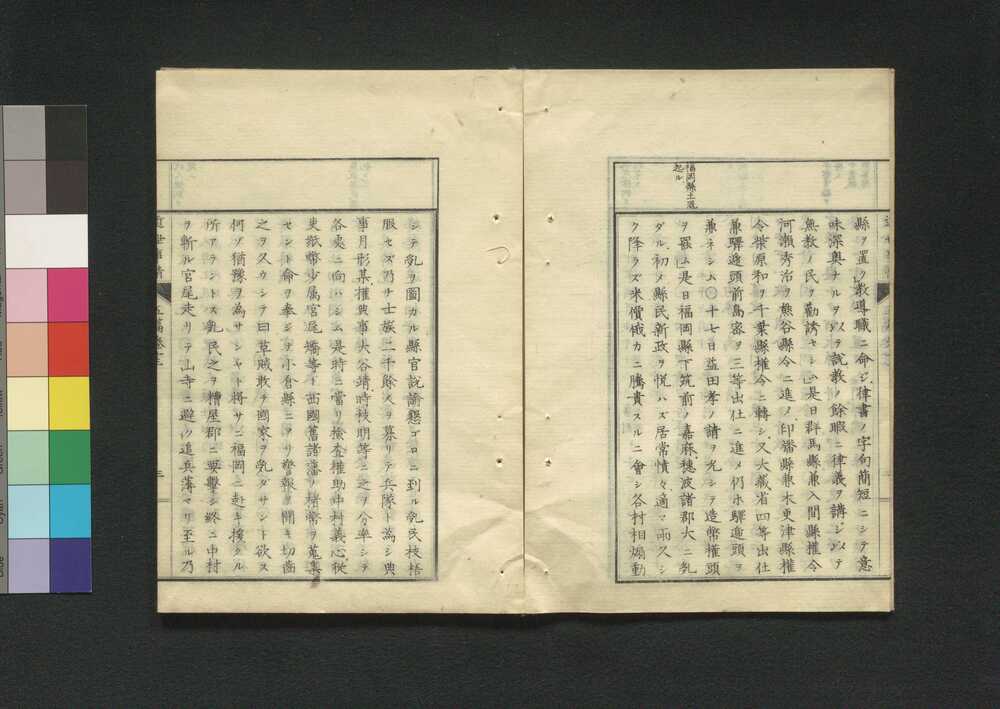 福岡縣土寇
起ル
縣ヲ置ク教導職ニ命シ律書ノ字句簡短ニシテ意
味深奥ナルヲ以テ説教ノ餘暇ニ律義ヲ講シメテ
無教ノ民ヲ勸誘セシム是日群馬縣兼入間縣權令
河瀬秀治ヲ熊谷縣令ニ進メ印旛縣兼木更津縣權
令柴原和ヲ千葉縣權令ニ轉シ又大藏省四等出仕
兼驛遞頭前島密ヲ三等出仕ニ進メ仍ホ驛遞頭ヲ
兼ネシム○十七日益田孝ノ請ヲ允シテ造幣權頭
ヲ罷ム是日福岡縣下筑前ノ嘉麻穂波諸郡大ニ乱
ダル初メ縣民新政ヲ悦ハズ居常憤々適マ雨久シ
ク降ラズ米價俄カニ騰貴スルニ會シ各村相煽動
シテ乱ヲ圖カル縣官説諭懇ゴロニ到ル乱民枝梧
服セズ乃チ士族二千餘人ヲ募リテ兵隊ト為シ典
事月形某權典事大谷靖時枝明等ニ之ヲ分率シテ
各處ニ向ハシム是時ニ當リ檢査權助中村義心從
吏紙幣少属官尾矯等ト西國舊諸藩ノ楮幣ヲ蒐集
セント命ヲ奉シテ小倉縣ニアリ警報ヲ聞キ切齒
之ヲ久ウシテ曰草賊敢テ國家ヲ乱ダサント欲ス
何ゾ猶豫ヲ為サシヤト將サニ福岡ニ赴キ援クル
所アラントス乱民之ヲ糟屋郡ニ要擊シ終ニ中村
ヲ斬ル官尾走リテ山寺ニ避ク追兵薄マリ至ル乃
五篇卷之三
三